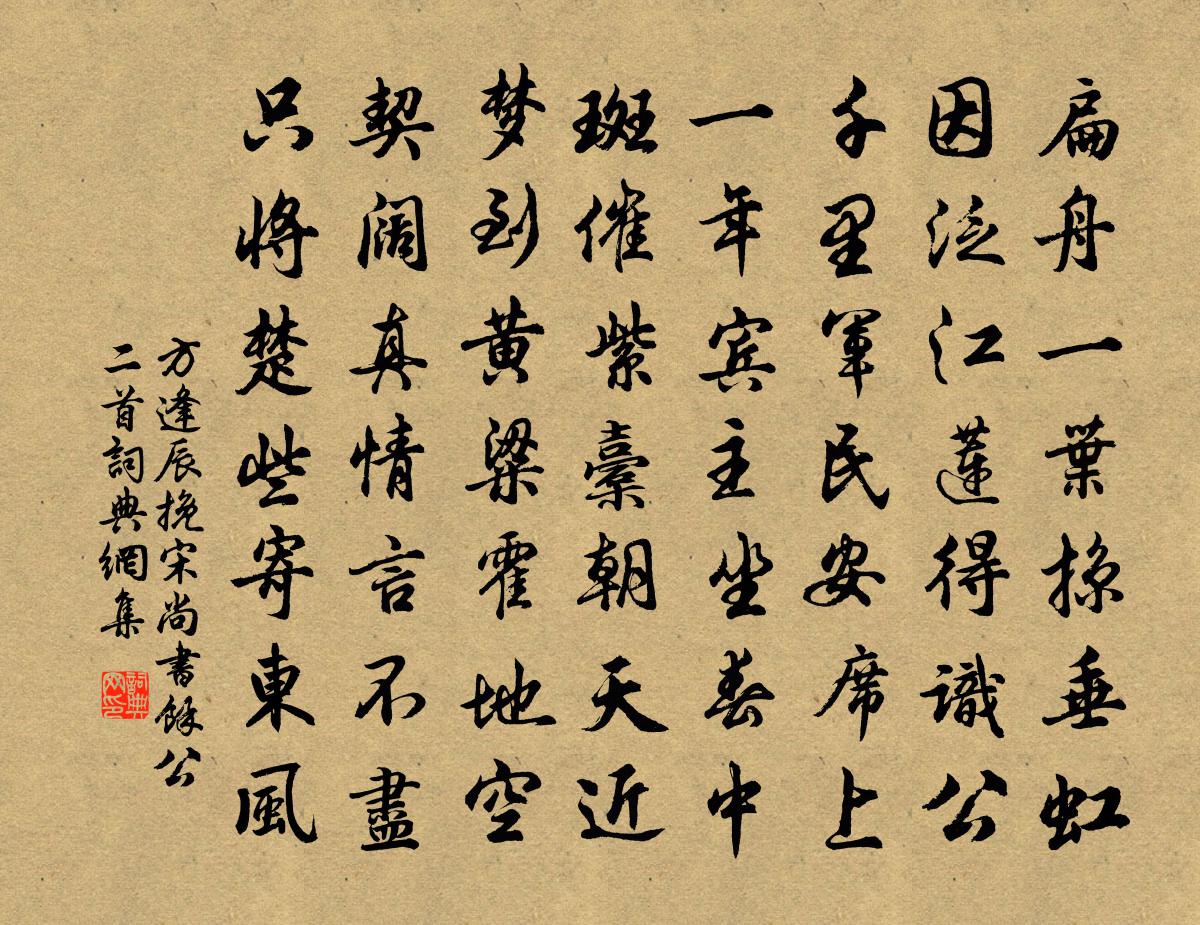 扁舟一葉掠垂虹
因泛江蓮得識公
千里軍民安席上
一年賓主坐春中
斑催紫橐朝天近
梦到黄粱霍地空
契阔真情言不盡
只將楚些寄東風
方逢辰挽宋尚書餘公
二首詞典網集
詞典
网印